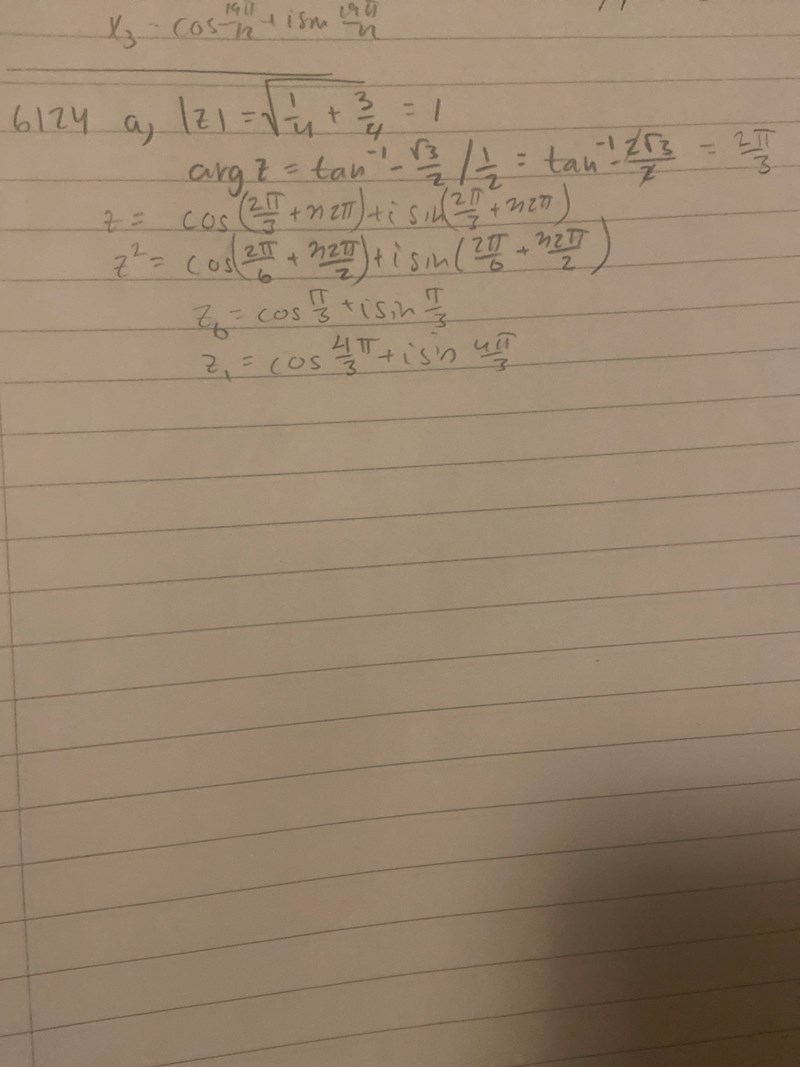 x₃ - cos 19π/12 + i sin 19π/12
6124 a, |z| = √(1/4 + 3/4) = 1
arg z = tan⁻¹ - √3/2 / 1/2 = tan⁻¹ - 2√3/2 = 2π/3
z = cos(2π/3 + n2π) + i sin(2π/3 + n2π)
z² = cos(2π/6 + n2π/2) + i sin(2π/6 + n2π/2)
z₀ = cos π/3 + i sin π/3
z₁ = cos 4π/3 + i sin 4π/3